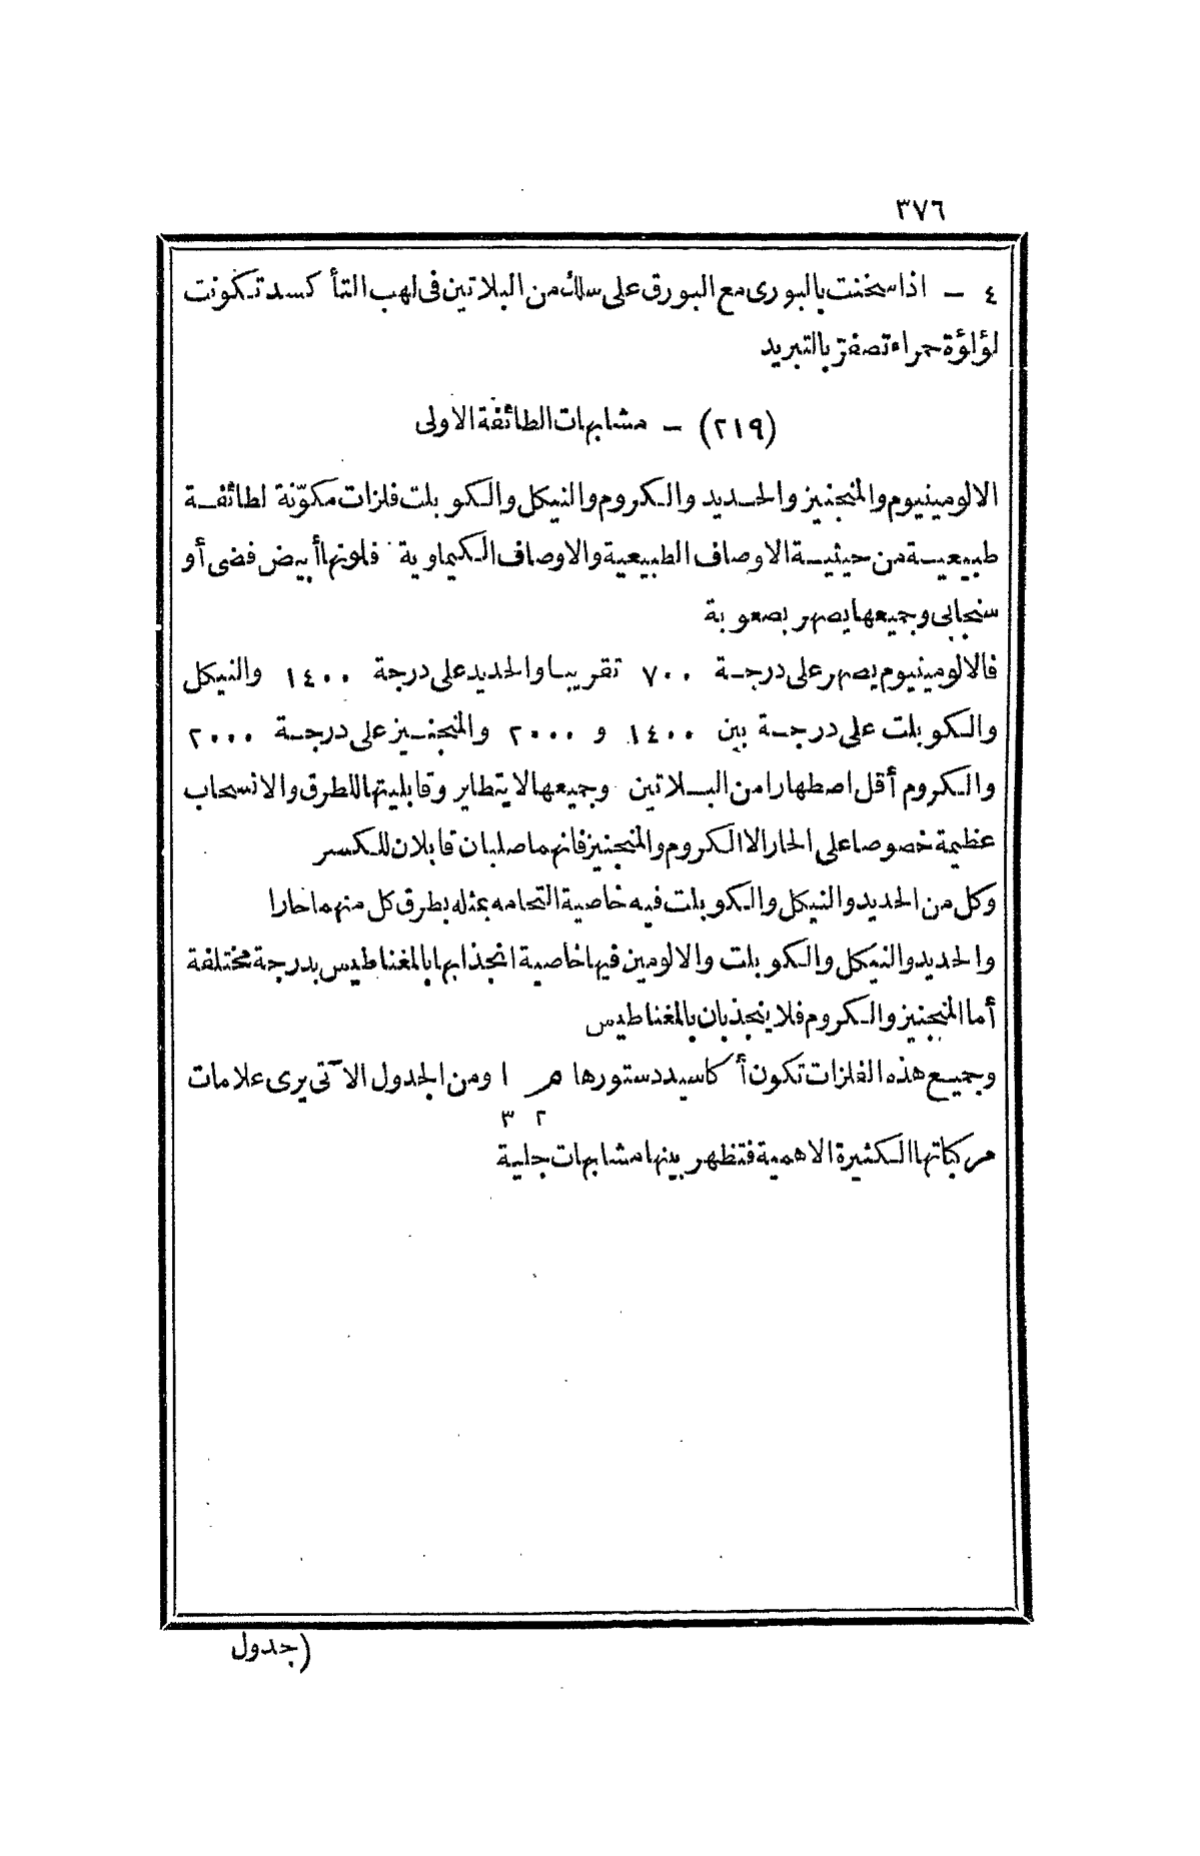 ٣٧٦
٤ ـ اذا سخنت بالبورى مع البورق على سلك من البلاتين فى لهب التأكسد تكونت
لؤلؤة حمراء تصفرّ بالتبريد
(٢١٩) ـ مشابهات الطائفة الاولى
الالومينيوم والمنجنيز والحديد والكروم والنيكل والكوبلت فلزات مكوّنة لطائفة
طبيعية من حيثية الاوصاف الطبيعية والاوصاف الكيماوية فلونها أبيض فضى أو
سنجابى وجميعها يصهر بصعوبة
فالالومينيوم يصهر على درجة ٧٠٠ تقريبا والحديد على درجة ١٤٠٠ والنيكل
والكوبلت على درجة بين ١٤٠٠ و ٢٠٠٠ والمنجنيز على درجة ٢٠٠٠
والكروم أقل اصطهارا من البلاتين وجميعها لا يتطاير وقابليتها للطرق والانسحاب
عظيمة خصوصا على الحار الا الكروم والمنجنيز فانهما صلبان قابلان للكسر
وكل من الحديد والنيكل والكوبلت فيه خاصية التحامه بمثله بطرق كل منهما حارا
والحديد والنيكل والكوبلت والالومين فيها خاصية انجذابها بالمغناطيس بدرجة مختلفة
أما المنجنيز والكروم فلا ينجذبان بالمغناطيس
وجميع هذه الفلزات تكون أكاسيد دستورها م ا ومن الجدول الآتى يرى علامات
٢ ٣
مركباتها الكثيرة الاهمية فتظهر بينها مشابهات جلية
(جدول